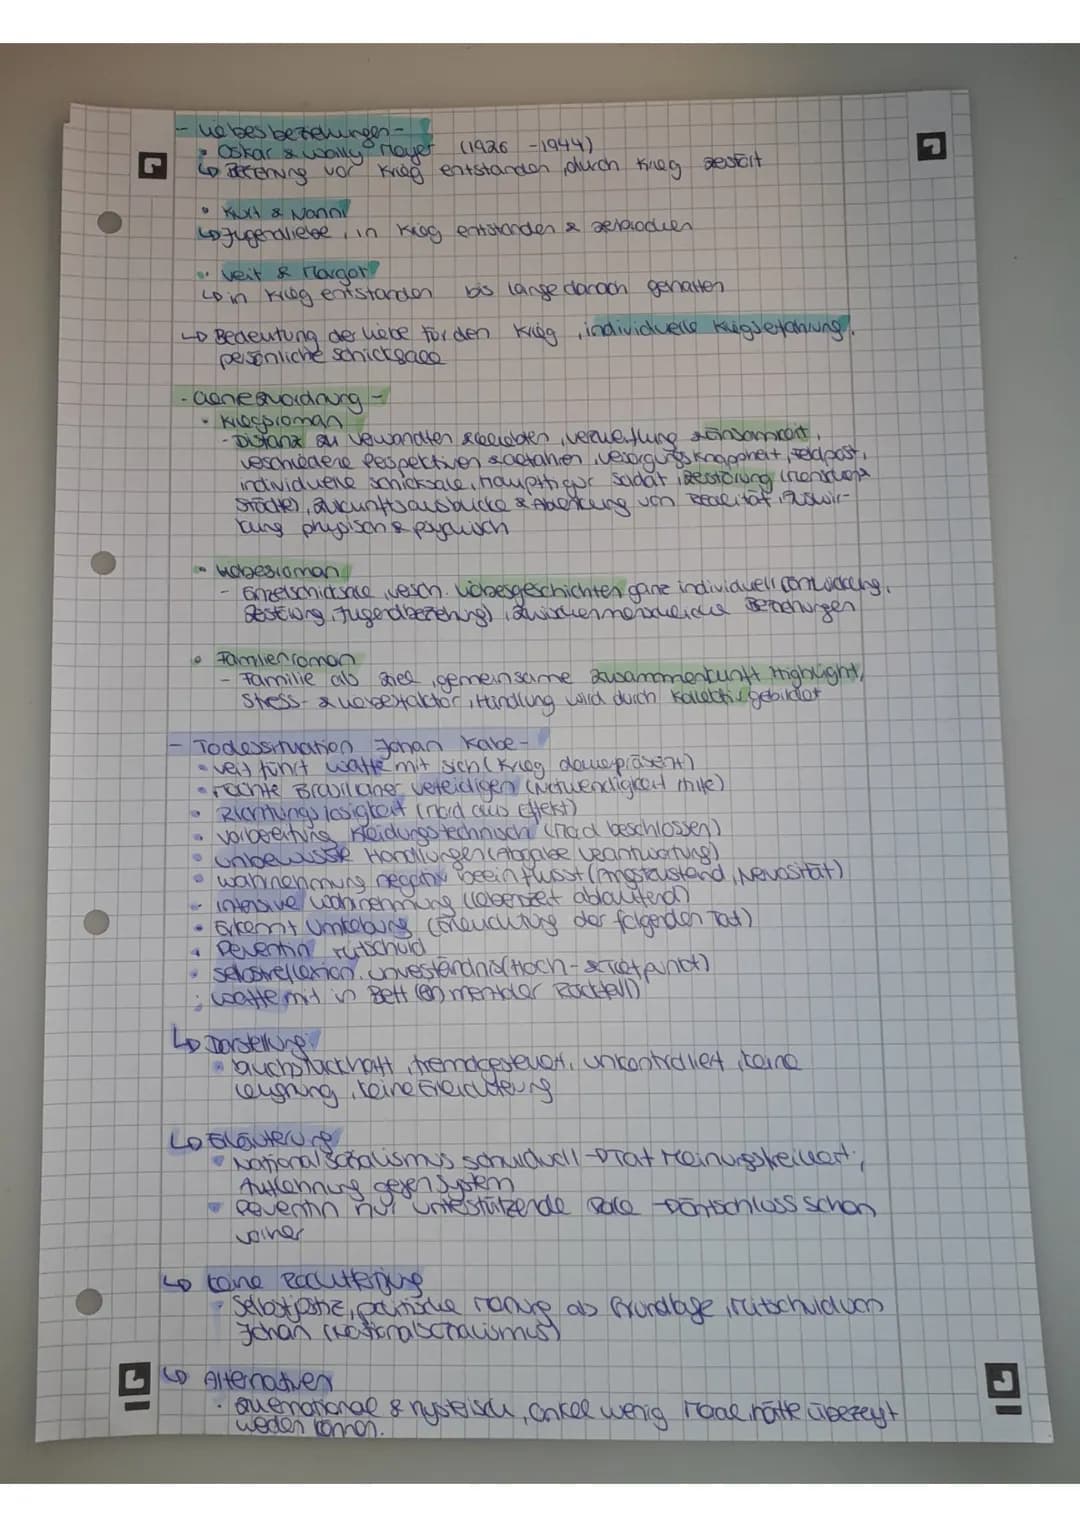 - Liebesbeziehungen -
• Oskar & Wally Meyer (1926 - 1944)
↳ vor Krieg entstanden, durch Krieg zerstört
• Kurt & Nanni
↳ Jugendliebe, in Krieg entstanden & zerbrochen
• Veit & Margot
↳ in Krieg entstanden bis lange danach gehalten
↳ Bedeutung der Liebe für den Krieg, individuelle Kriegserfahrung,
persönliche Schicksale
- Genrezuordnung -
• Kriegsroman
- Distanz zu Verwandten & Geliebten, Verzweiflung & Einsamkeit,
verschiedene Perspektiven & Gefahren, Versorgungsknappheit, Feldpost,
individuelle Schicksale, Hauptfigur Soldat, Zerstörung (Mensch &
Städte), Zukunftsausblicke & Ablenkung von Realität, Auswir-
kung physisch & psychisch
• Liebesroman
- Einzelschicksale, versch. Liebesgeschichten ganz individuell (Entwicklung,
Zerstörung, Jugendbeziehung), zwischenmenschliche Beziehungen
• Familienroman
- Familie als Ziel, gemeinsame Zusammenkunft Highlight,
Stress- & Liebesfaktor, Handlung wird durch Kollektiv gebildet
- Todessituation Johan Kolbe -
• Veit führt Waffe mit sich (Krieg dauerpräsent)
• möchte Brasilianer verteidigen (Notwendigkeit Hilfe)
• Richtungslosigkeit (Mord aus Effekt)
• Vorbereitung kleidungstechnisch (Mord beschlossen)
• unbewusste Handlungen (Abgabe Verantwortung)
• Wahrnehmung negativ beeinflusst (Angstzustand, Nervosität)
- intensive Wahrnehmung (Lebenszeit ablaufend)
• Erkennt Umgebung (Erleuchtung der folgenden Tat)
• Pervertin Mitschuld
• Selbstreflexion, Unverständnis (Hoch- & Tiefpunkt)
• Waffe mit in Bett (ein mentaler Rückfall)
↳ Darstellung
• bruchstückhaft, fremdgesteuert, unkontrolliert, keine
Leugnung, keine Erleichterung
↳ Erläuterung
• Nationalsozialismus schuldvoll → Tat Meinungsfreiheit,
Auflehnung gegen System
• Pervertin nur unterstützende Rolle → Entschluss schon
vorher
↳ keine Rechtfertigung
• Selbstjustiz, politische Haltung als Grundlage, Mitschuld von
Johan (Nationalsozialismus)
↳ Alternativen
• & hysterisch, Onkel wenig Moral, hätte überzeugt
werden können.